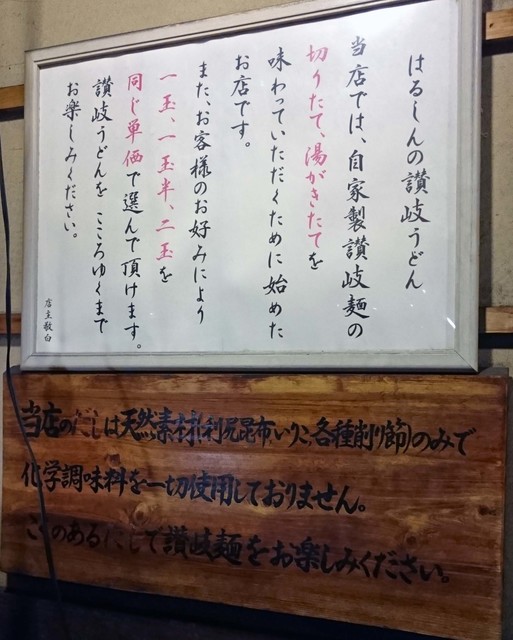 はるしんの讃岐うどん
当店では、自家製讃岐麺の
切りたて、湯がきたてを
味わっていただくために始めた
お店です。
また、お客様のお好みにより
一玉、一玉半、二玉を
同じ単価で選んで頂けます。
讃岐うどんを こころゆくまで
お楽しみください。
店主敬白
当店のだしは天然素材(利尻昆布、いりこ、各種削り節)のみで
化学調味料を一切使用しておりません。
こくのあるだしで讃岐麺をお楽しみください。